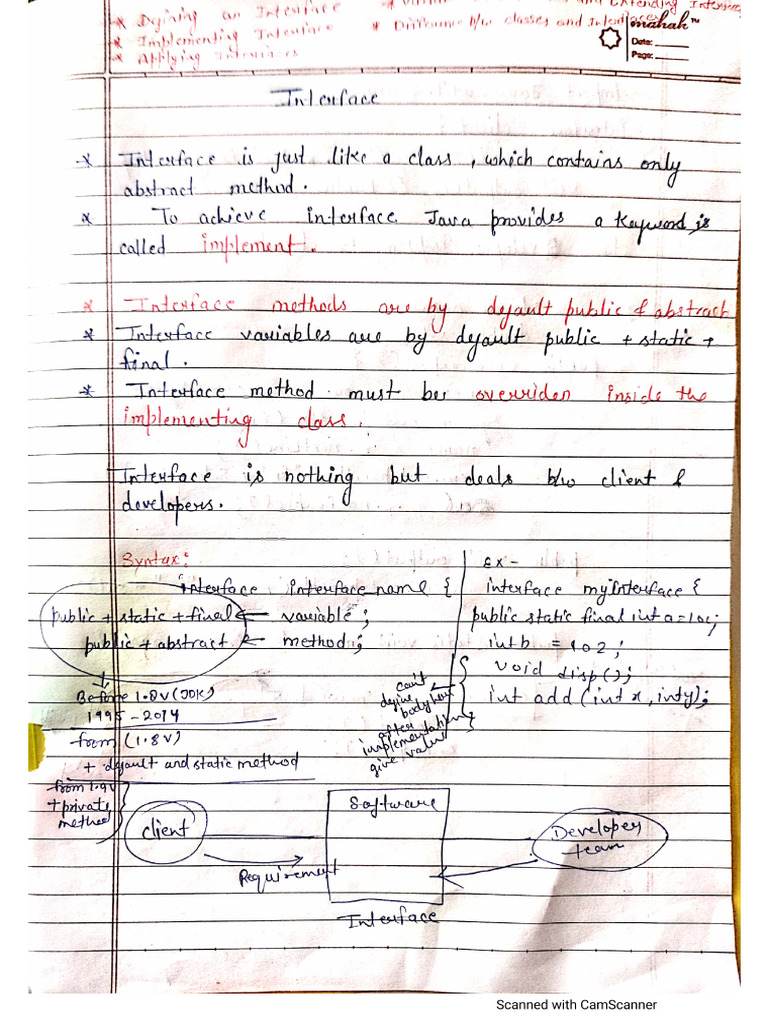 * Defining an Interface
* Implementing Interface
* Applying Interfaces
and Extending Interfaces
* Difference b/w classes and Interfaces
mahak™
Date:
Page:
Interface
* Interface is just like a class, which contains only
abstract method.
* To achieve interface Java provides a keyword is
called implement.
* Interface methods are by default public & abstract
* Interface variables are by default public + static +
final.
* Interface method must be overriden inside the
implementing class.
Interface is nothing but deals b/w client &
developers.
Syntax:
interface interface name {
public + static + final ← variable;
public + abstract ← method;
Before 1.8V (JDK)
1995 - 2014
from (1.8V)
+ default and static method
from 1.9V
+ private
method
Ex -
interface myInterface {
public static final int a=101;
int b = 102;
void disp();
int add (int x, int y);
can't
define
body here
after
implementation
give value
client
Requirement
Software
Developer
team
Interface
Scanned with CamScanner